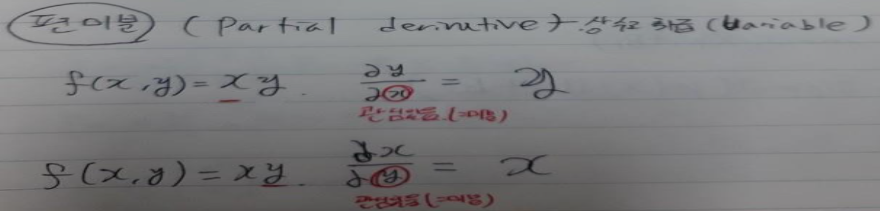 편미분 (Partial derivative) 상수 취급 (Variable)
f(x,y) = xy. ∂y/∂x = y
관심있음.(=미분)
f(x,y) = xy. ∂x/∂y = x
관심있음(=미분)